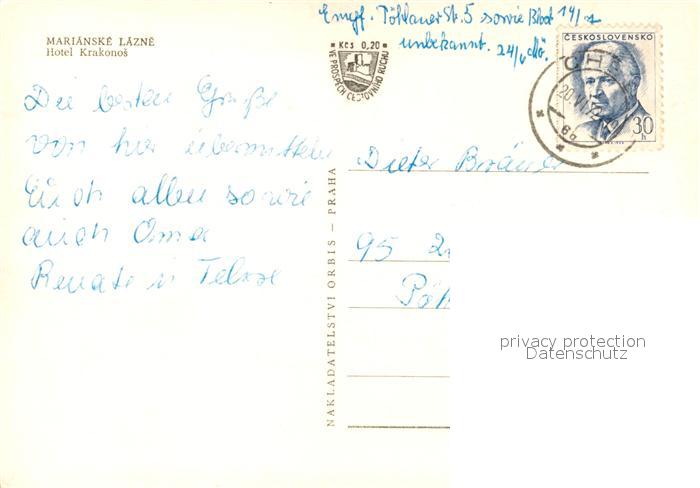 Empf. Pöhlauer Str. 5 sowie Block 14/
unbekannt. 24/6
MARIÁNSKÉ LÁZNĚ
Hotel Krakonoš
Kčs 0,20
VE PROSPĚCH CESTOVNÍHO RUCHU
ČESKOSLOVENSKO
30 h
CHEB
20.VI.72
6b
Die besten Grüße
von hier übermitteln
Euch allen sowie
auch Oma
Renate u.
Dieter
95
NAKLADATELSTVÍ ORBIS – PRAHA
privacy protection
Datenschutz